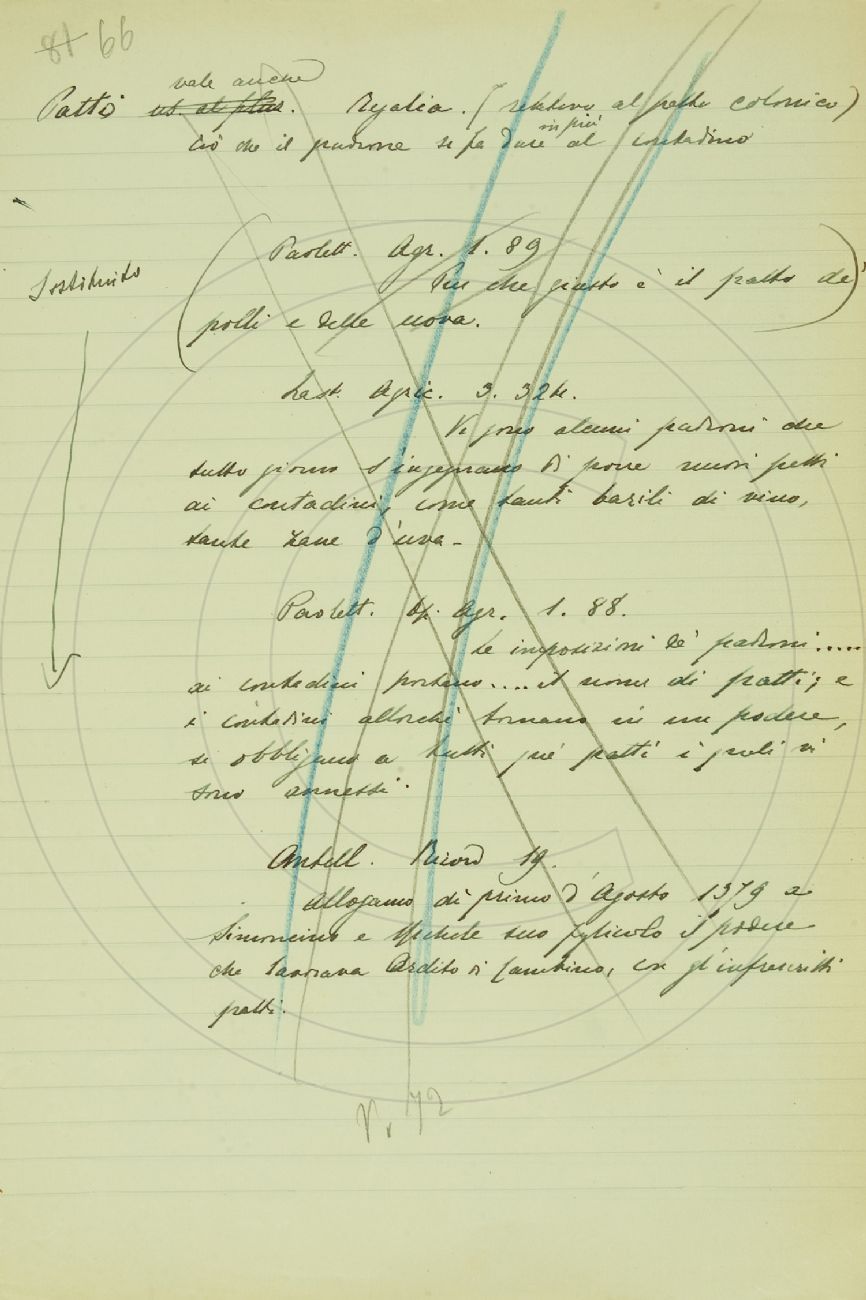 81 66
vale anche
Patto us. al plur. Regalia. (relativo al patto colonico)
in più
Ciò che il padrone si fa dare al contadino
Paolett. Agr. 1. 89
Più che giusto è il patto de'
polli e delle uova.
Sostituito
Last. Agric. 3. 324.
Vi sono alcuni padroni che
tutto giorno s'ingegnano di porre nuovi patti
ai contadini, come tanti barili di vino,
tante zane d'uva -
Paolett. Op. Agr. 1. 88.
Le imposizioni de' padroni.....
ai contadini portano.... il nome di patti; e
i contadini allorchè tornano in un podere,
si obbligano a tutti que' patti i quali vi
sono annessi.
Antell. Ricord 19.
Allogamo dì primo d'Agosto 1379 a
Simoncino e Michele suo figliuolo il podere
che lavorava Ardito di Cambino, con gl'infrascritti
patti.
V. 72